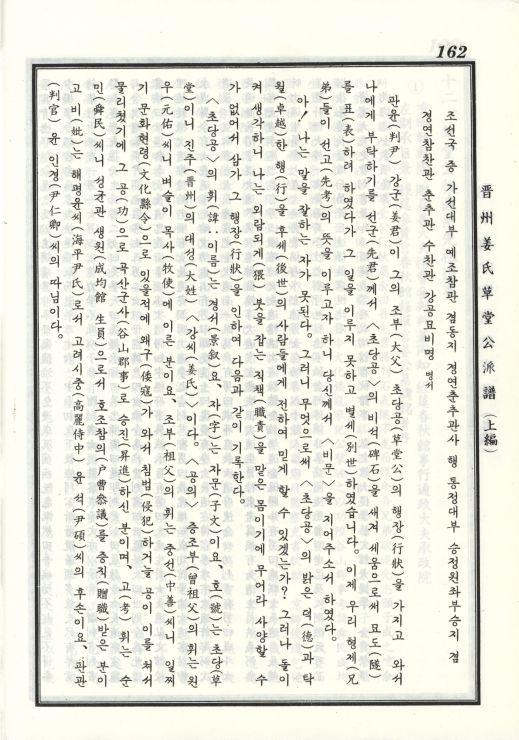 162
晋州姜氏草堂公派譜 (上編)
조선국 증 가선대부 예조참판 겸동지 경연춘추관사 행 통정대부 승정원좌부승지 겸
경연참찬관 춘추관 수찬관 강공묘비명 병서
판윤(判尹) 강군(姜君)이 그의 조부(大父) 초당공(草堂公)의 행장(行狀)을 가지고 와서
나에게 부탁하기를 선군(先君)께서 〈초당공〉의 비석(碑石)을 새겨 세움으로써 묘도(隧)
를 표(表)하려 하였다가 그 일을 이루지 못하고 별세(別世)하였습니다. 이제 우리 형제(兄
弟)들이 선고(先考)의 뜻을 이루고자 하니 당신께서 〈비문〉을 지어주소서 하였다.
아! 나는 말을 잘하는 자가 못된다. 그러니 무엇으로써 〈초당공〉의 밝은 덕(德)과 탁
월(卓越)한 행(行)을 후세(後世)의 사람들에게 전하여 믿게 할 수 있겠는가? 그러나 돌이
켜 생각하니 나는 외람되게(猥) 붓을 잡는 직책(職責)을 맡은 몸이기에 무어라 사양할 수
가 없어서 삼가 그 행장(行狀)을 인하여 다음과 같이 기록한다.
〈초당공〉의 휘(諱:이름)는 경서(景叙)요、자(字)는 자문(子文)이요、호(號)는 초당(草
堂)이니 진주(晋州)의 대성(大姓) 〈강씨(姜氏)〉이다。〈공의〉 증조부(曾祖父)의 휘는 원
우(元佑)씨니 벼슬이 목사(牧使)에 이른 분이요、조부(祖父)의 휘는 중선(中善)씨니 일찌
기 문화현령(文化縣令)으로 있을적에 왜구(倭寇)가 와서 침범(侵犯)하거늘 공이 이를 쳐서
물리쳤기에 그 공(功)으로 곡산군사(谷山郡事)로 승진(昇進)하신 분이며、고(考) 휘는 순
민(舜民)씨니 성균관 생원(成均館 生員)으로서 호조참의(戶曹叅議)를 증직(贈職)받은 분이
고 비(妣)는 해평윤씨(海平尹氏)로서 고려시중(高麗侍中) 윤 석(尹碩)씨의 후손이요、판관
(判官) 윤 인경(尹仁卿)씨의 따님이다。